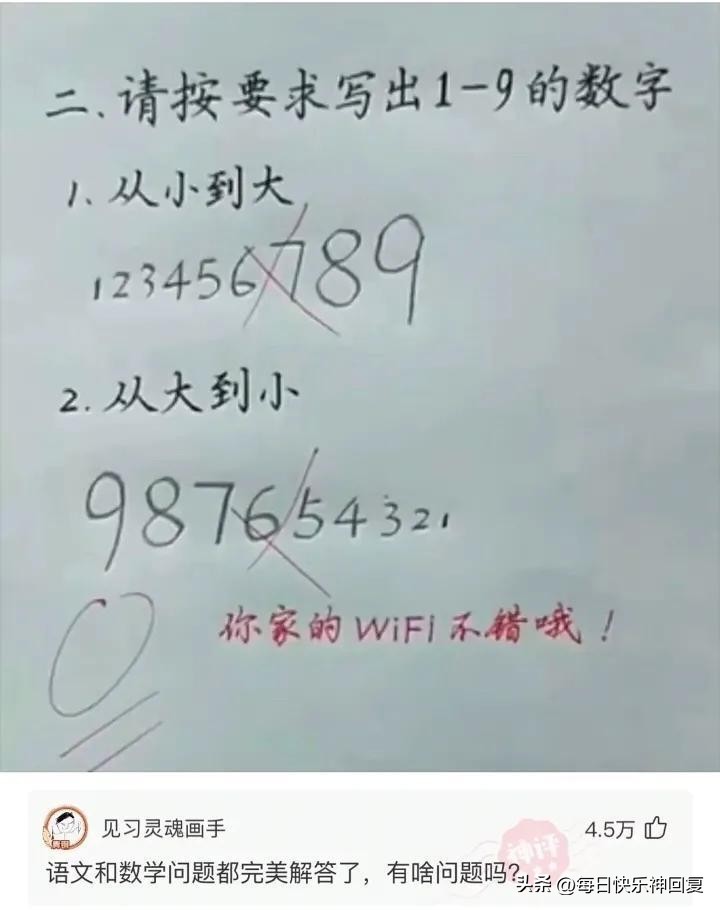 二、请按要求写出1-9的数字
1、从小到大
123456789
2.从大到小
987654321
0
你家的WiFi不错哦！
见习灵魂画手
4.5万
语文和数学问题都完美解答了，有啥问题吗？
神评
头条 @每日快乐神回复